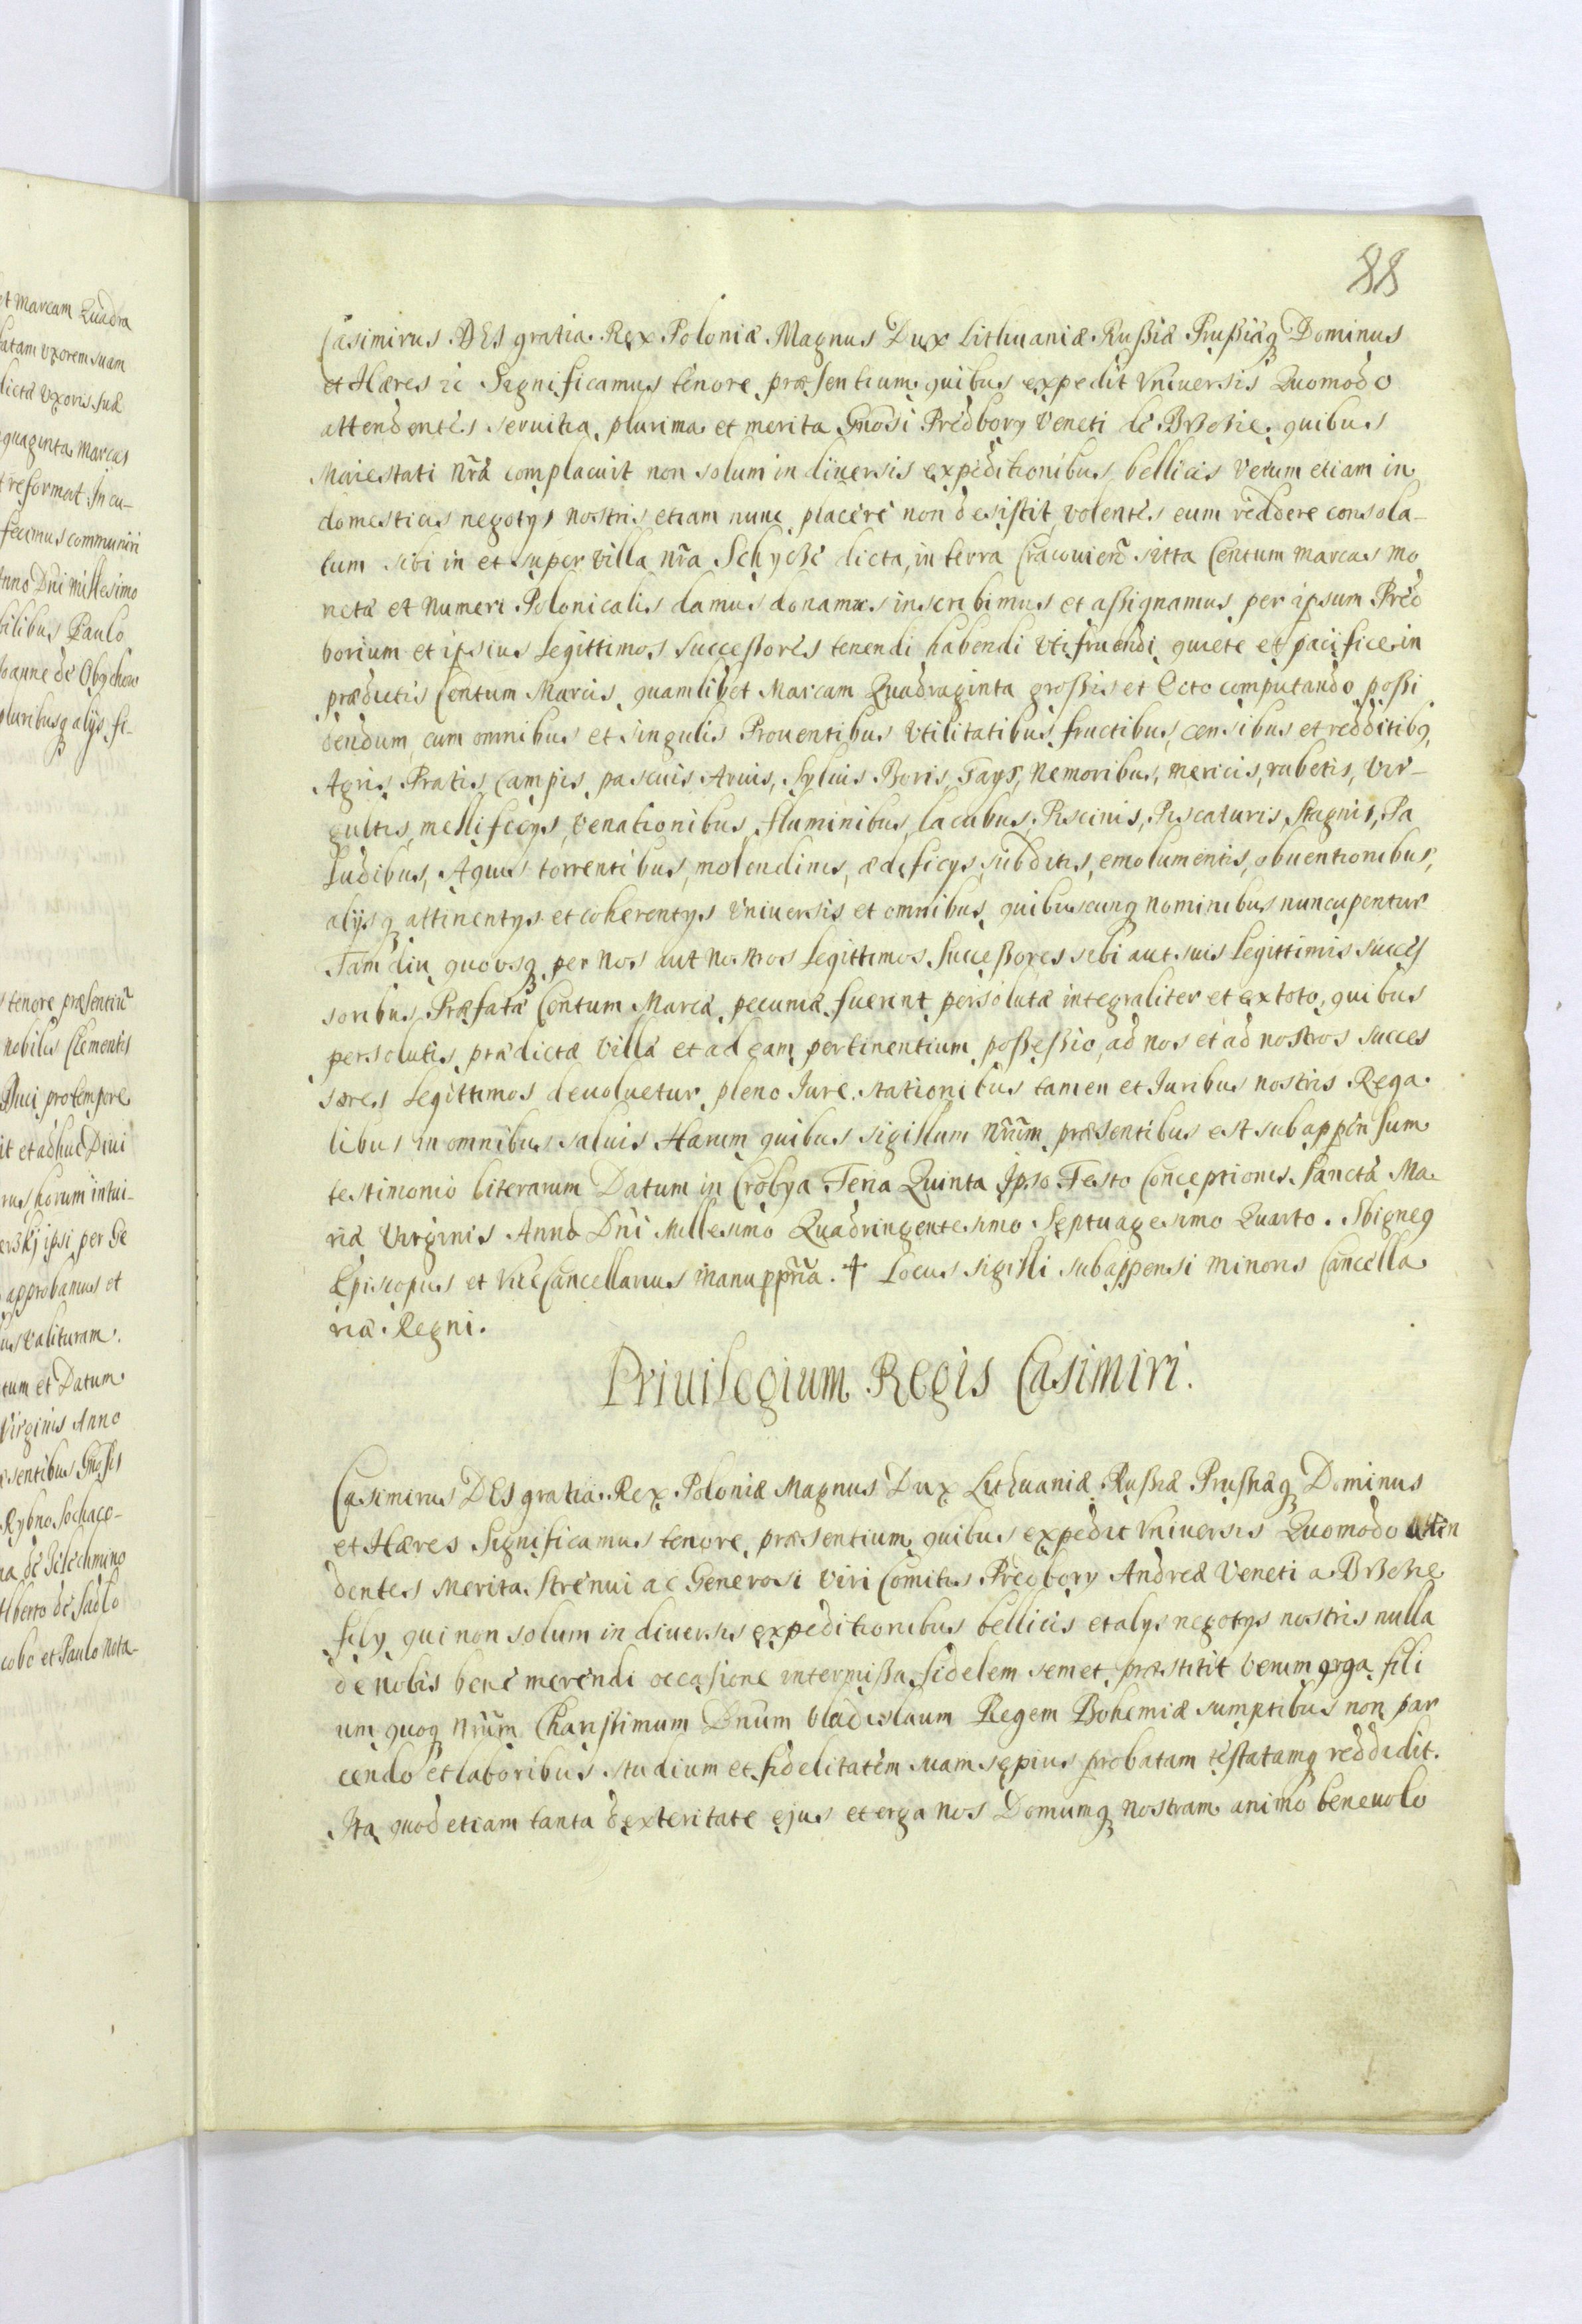 88
Casimirus DEI gratia Rex Poloniæ Magnus Dux Lithuaniæ Rußiæ Prußiæq Dominus
et Hæres ic Significamus tenore præsentium quibus expedit Vniuersis Quomodo
attendentes seruitia plurima et merita Gnosi Predbory Veneti de Brzezie quibus
Maiestati Nrã complacuit non solum in diuersis expeditionibus bellicis verum etiam in
domesticis negotys nostris etiam nunc placere non desistit volentes eum reddere consola-
tum sibi in et super villa nrã Schyce dicta, in terra Cracouien sitta Centum marcas mo
netæ et numeri Polonicalis damus donamus inscribimus et aßignamus per ipsum Pred
borium et ipsius Legittimos Succeßores tenendi habendi vtifruendi quiete et pacifice in
prædictis Centum Marcis quamlibet Marcam Quadraginta großis et Octo computando poßi
dendum cum omnibus et singulis Prouentibus Vtilitatibus fructibus, censibus et redditibq
Agris Pratis Campis pascuis Aruis, Syluis Boris Gays, Nemoribus, mericis, rubetis, vir-
gultis, mellificys, venationibus fluminibus lacubus, Piscinis, Piscaturis Stagnis, Pa
ludibus, Aquis torrentibus, molendinis, ædificys subditis, emolumentis, obuentionibus,
alijsq attinentys et coherentys Vniuersis et omnibus quibuscunq nominibus nuncupentur
Tam diu quousq per nos aut nostros Legittimos Succeßores sibi aut suis Legittimis succes
soribus Præfatæ Centum Marcæ pecuniæ fuerint persolutæ integraliter et ex toto, quibus
persolutis prædictæ Villæ et ad eam pertinentium poßeßio, ad nos et ad nostros succes
sores Legittimos deuoluetur pleno Jure. stationibus tamen et Juribus nostris Rega
libus in omnibus saluis Harum quibus sigillum nrũm præsentibus est subappensum
testimonio literarum Datum in Crobya Feria Quinta Ipso Festo Conceptionis Sanctæ Ma
riæ Virginis Anno Dni Millesimo Quadringentesimo Septuagesimo Quarto. Sbigneq
Episcopus et ViceCancellarius manu pprĩa. ✝ Locus sigilli subappensi minoris Cancella
riæ Regni.
Priuilegium Regis Casimiri.
Casimirus DEI gratia Rex Poloniæ Magnus Dux Lithuaniæ Rußiæ Prußiæq Dominus
et Hæres Significamus tenore præsentium quibus expedit Vniuersis Quomodo atten
dentes Merita Strenui ac Generosi Viri Comitis Predbory Andreæ Veneti a Brzezie
fily qui non solum in diuersis expeditionibus bellicis et alys negotys nostris nulla
de nobis bene merendi occasione intermißa fidelem semet præstitit Verum erga fili
um quoq nrũm Charißimum Dnũm Vladislaum Regem Bohemiæ sumptibus non par
cendo et laboribus studium et fidelitatem suam sepius probatam testatamq reddidit.
Ita quod etiam tanta dexteritate ejus et erga nos Domumq nostram animo beneuolo
et Marcam Quadra
fatam Vxorem suam
dictæ Vxoris suæ
quaginta Marcas
t reformat. In cu-
fecimus communiri
Anno Dni Millesimo
bilibus Paulo
Joanne de Obychow
pluribusq alijs fi-
tenore præsentiũ
nobilis Clementis
Duci pro tempore
it et adhuc Diui
rus horum intui-
erskj ipsi per Ge
approbamus et
us valituram.
tum et Datum
Virginis Anno
sentibus Gnosis
Rybno Sochace-
lberto de Sadlo
cobo et Paulo Nota-